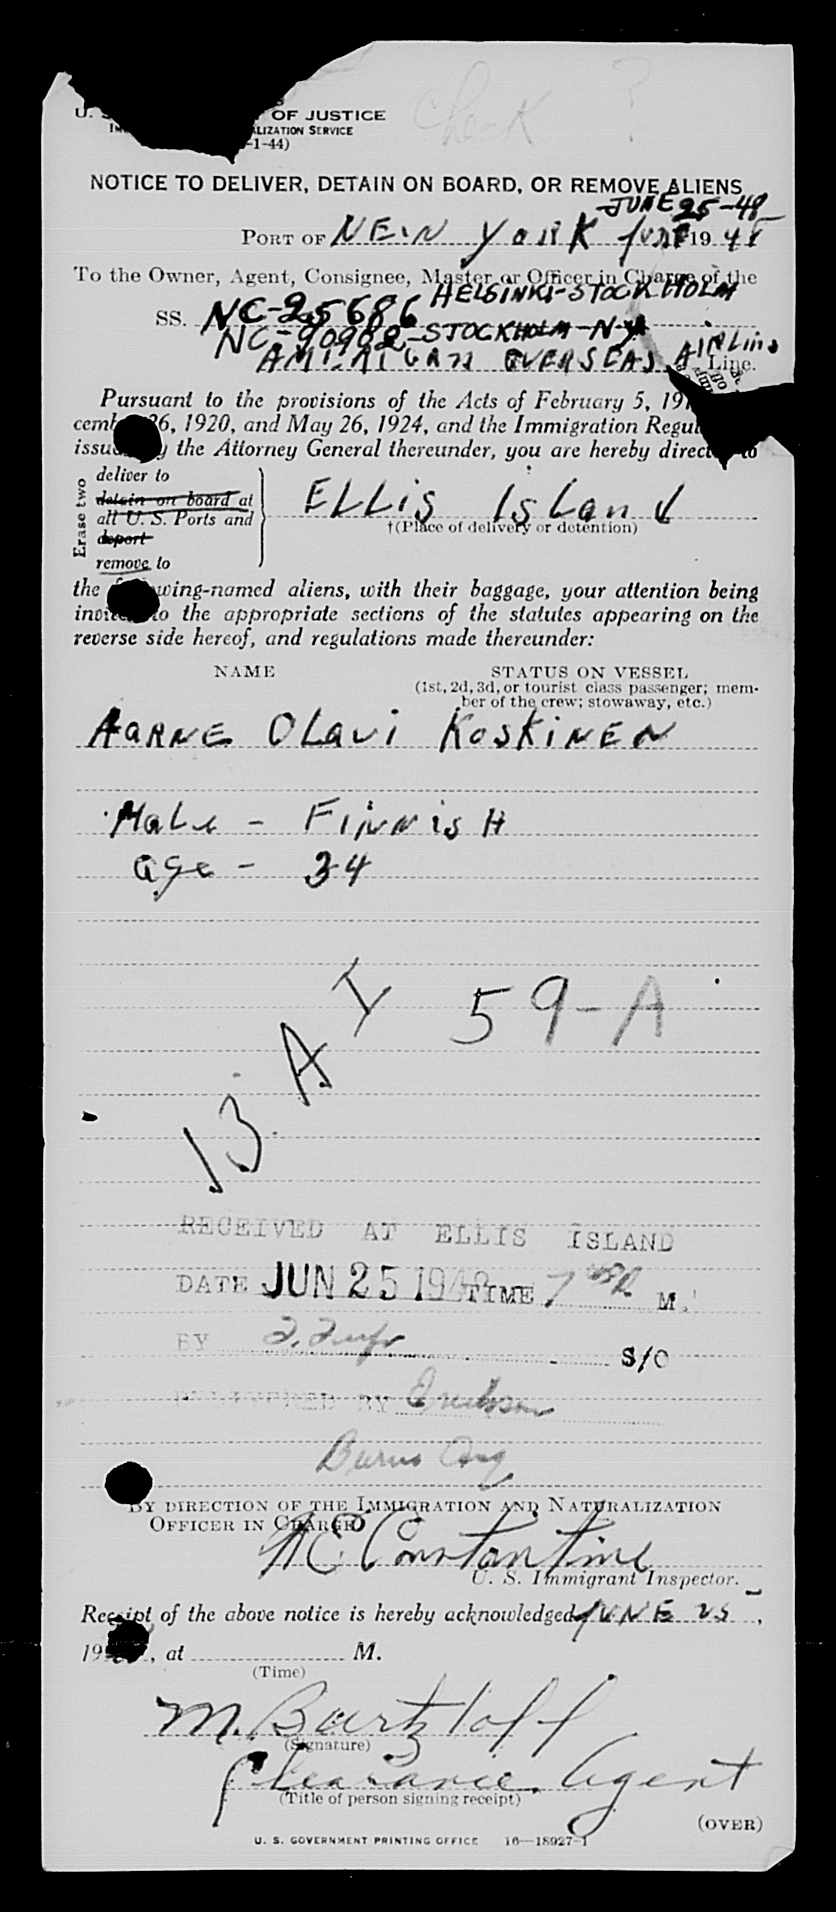 Check ?
U. S. OF JUSTICE
ALIZATION SERVICE
-1-44)
NOTICE TO DELIVER, DETAIN ON BOARD, OR REMOVE ALIENS
JUNE 25-48
PORT OF NEW YORK JUNE 19 48
To the Owner, Agent, Consignee, Master or Officer in Charge of the
HELSINKI-STOCKHOLM
SS. NC-25686
NC-90902-STOCKHOLM-N.Y.
AMERICAN OVERSEAS AIRLINE Line.
Pursuant to the provisions of the Acts of February 5, 19
cemb 26, 1920, and May 26, 1924, and the Immigration Regu
issued by the Attorney General thereunder, you are hereby directed to
Erase two
deliver to
detain on board at
all U. S. Ports and
deport
remove to
ELLIS ISLAND
†(Place of delivery or detention)
the following-named aliens, with their baggage, your attention being
invited to the appropriate sections of the statutes appearing on the
reverse side hereof, and regulations made thereunder:
NAME STATUS ON VESSEL
(1st, 2d, 3d, or tourist class passenger; mem-
ber of the crew; stowaway, etc.)
AARNE OLAVI KOSKINEN
Male - FINNISH
age - 34
13 A I 59-A
RECEIVED AT ELLIS ISLAND
DATE JUN 25 1948 TIME 7 M.
BY S/O
DELIVERED BY Erickson
Burns
BY DIRECTION OF THE IMMIGRATION AND NATURALIZATION
OFFICER IN CHARGE
N E Constantine
U. S. Immigrant Inspector.
Receipt of the above notice is hereby acknowledged JUNE 25,
19 , at M.
(Time)
M. Bartzloff
(Signature)
Clearance Agent
(Title of person signing receipt)
(OVER)
U. S. GOVERNMENT PRINTING OFFICE 16—18927-1